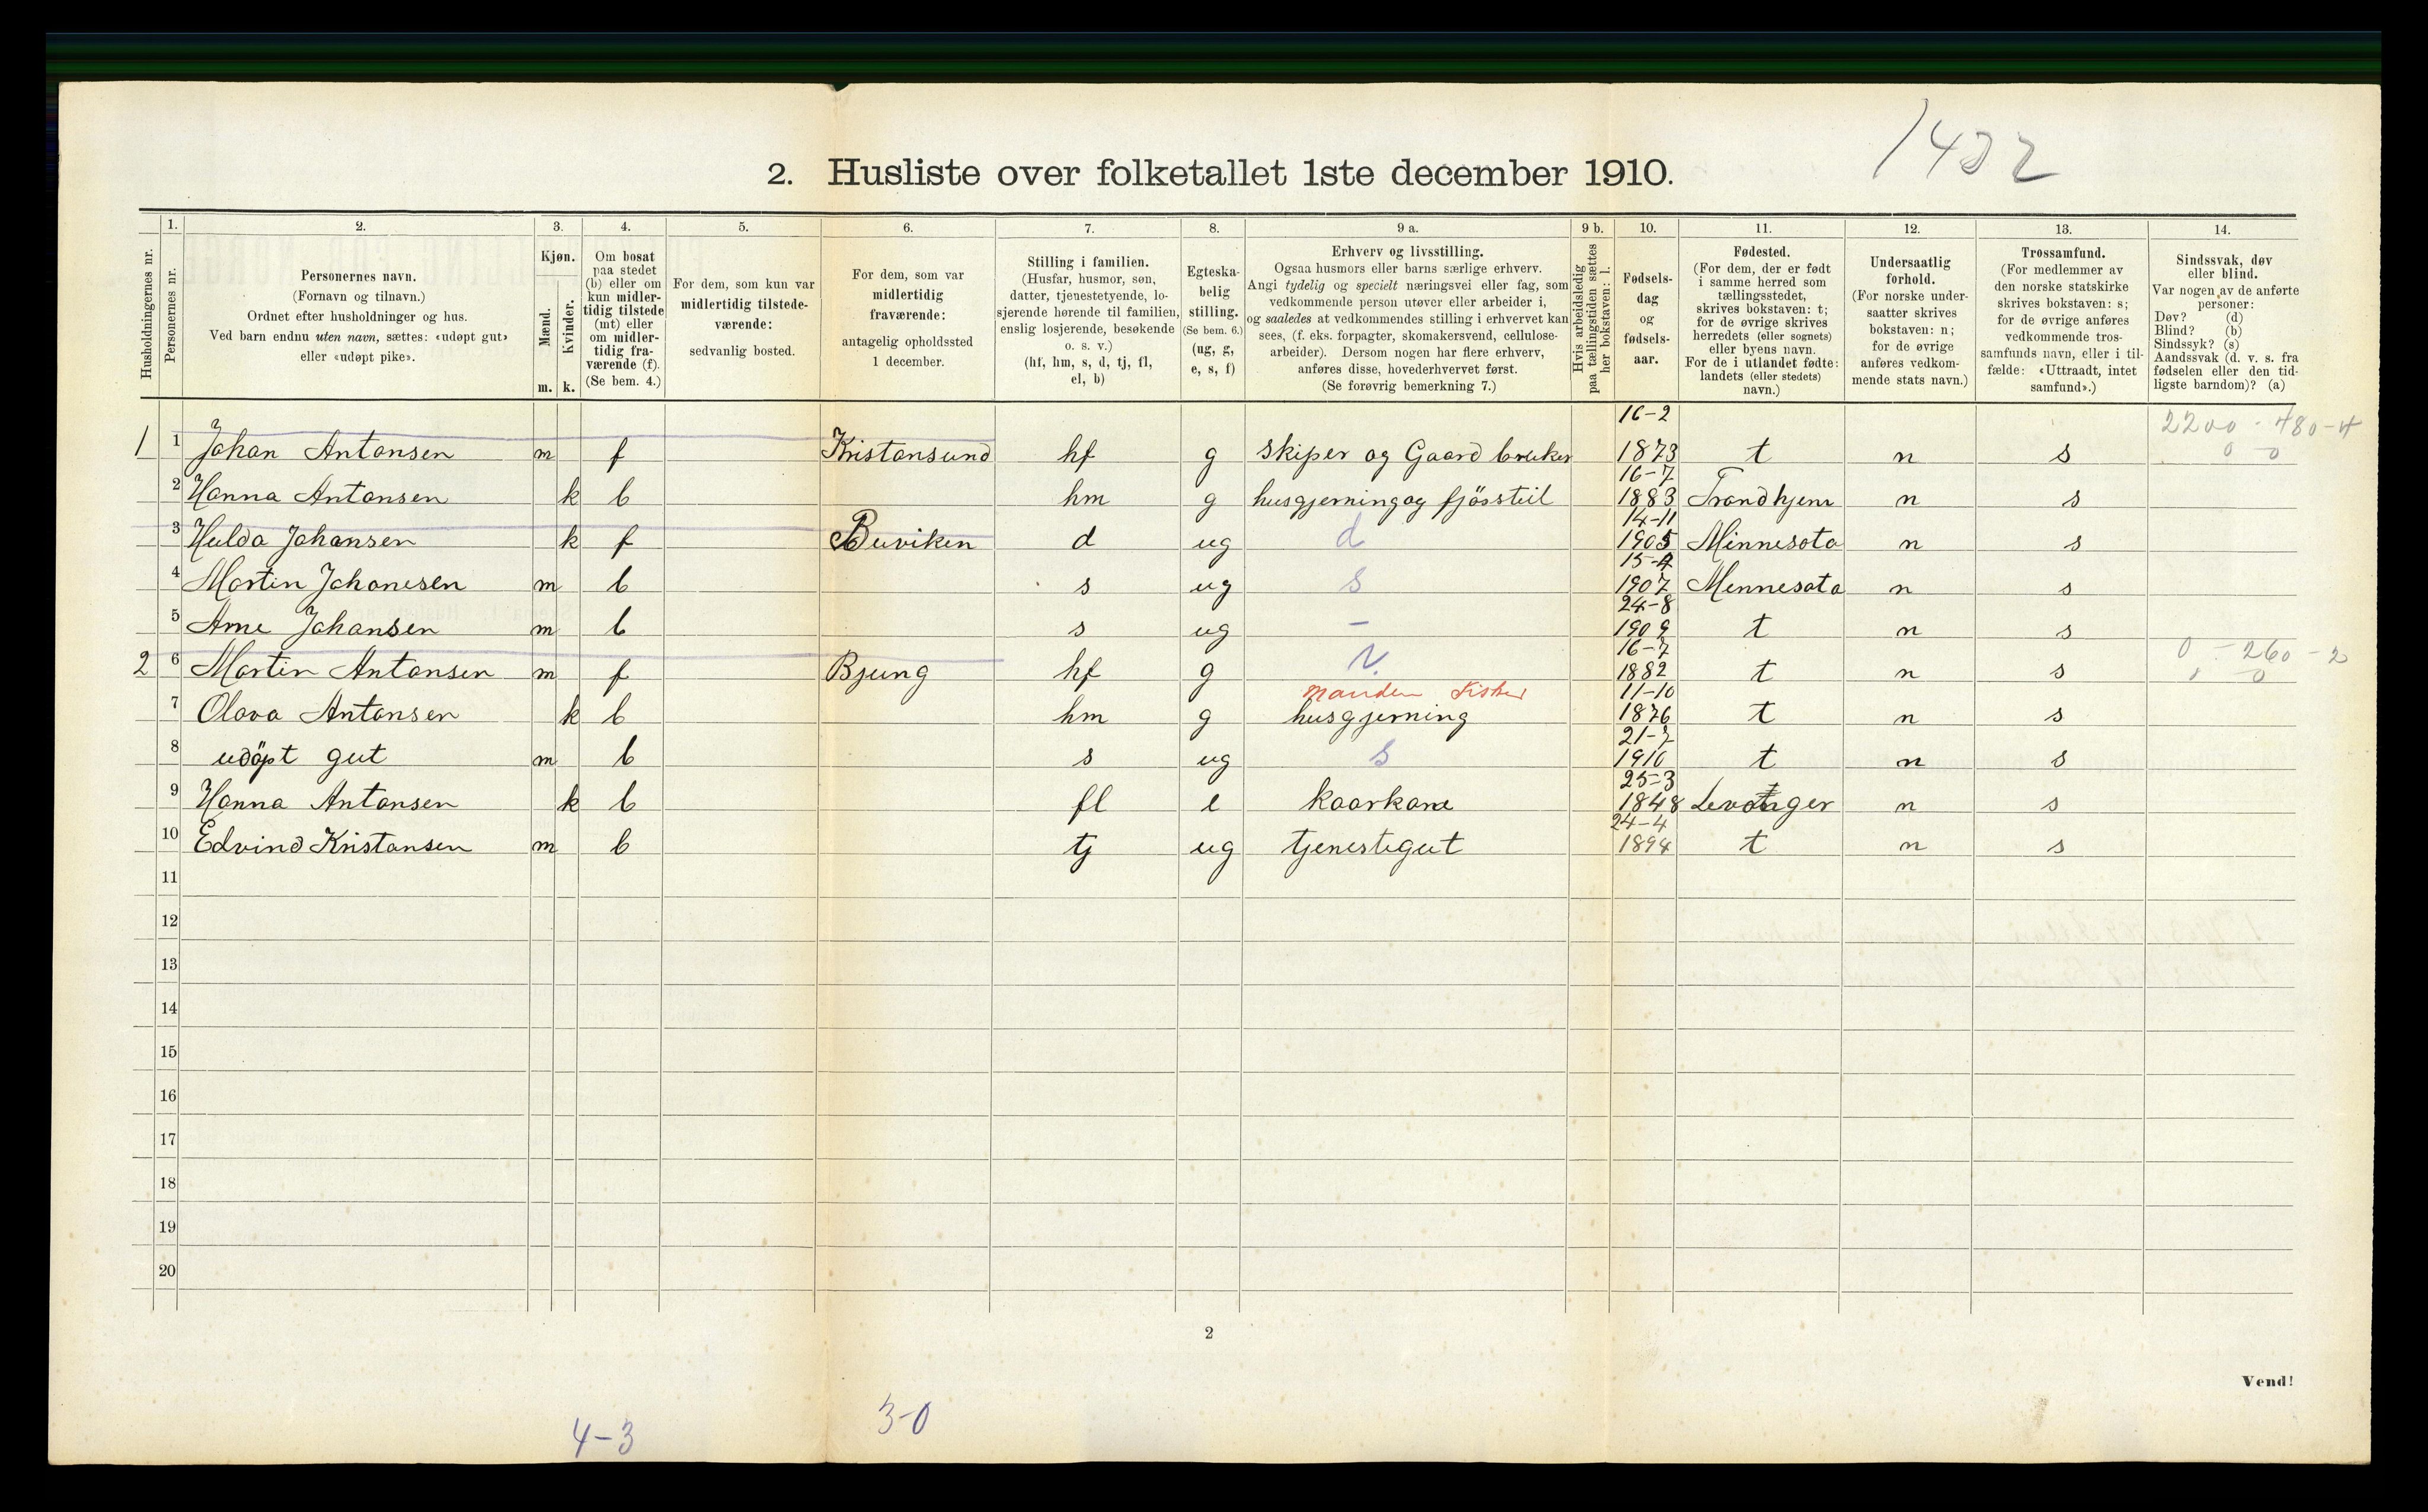 1432
2. Husliste over folketallet 1ste december 1910.
Husholdningernes nr.
1.
Personernes nr.
2.
Personernes navn.
(Fornavn og tilnavn.)
Ordnet efter husholdninger og hus.
Ved barn endnu uten navn, sættes: «udøpt gut»
eller «udøpt pike».
3.
Kjøn.
Mænd.
Kvinder.
m. k.
4.
Om bosat
paa stedet
(b) eller om
kun midler-
tidig tilstede
(mt) eller
om midler-
tidig fra-
værende (f).
(Se bem. 4.)
5.
For dem, som kun var
midlertidig tilstede-
værende:
sedvanlig bosted.
6.
For dem, som var
midlertidig
fraværende:
antagelig opholdssted
1 december.
7.
Stilling i familien.
(Husfar, husmor, søn,
datter, tjenestetyende, lo-
sjerende hørende til familien,
enslig losjerende, besøkende
o. s. v.)
(hf, hm, s, d, tj, fl,
el, b)
8.
Egteska-
belig
stilling.
(Se bem. 6.)
(ug, g,
e, s, f)
9 a.
Erhverv og livsstilling.
Ogsaa husmors eller barns særlige erhverv.
Angi tydelig og specielt næringsvei eller fag, som
vedkommende person utøver eller arbeider i,
og saaledes at vedkommendes stilling i erhvervet kan
sees, (f. eks. forpagter, skomakersvend, cellulose-
arbeider). Dersom nogen har flere erhverv,
anføres disse, hovederhvervet først.
(Se forøvrig bemerkning 7.)
9 b.
Hvis arbeidsledig
paa tællingstiden sættes
her bokstaven: l.
10.
Fødsels-
dag
og
fødsels-
aar.
11.
Fødested.
(For dem, der er født
i samme herred som
tællingsstedet,
skrives bokstaven: t;
for de øvrige skrives
herredets (eller sognets)
eller byens navn.
For de i utlandet fødte:
landets (eller stedets)
navn.)
12.
Undersaatlig
forhold.
(For norske under-
saatter skrives
bokstaven: n;
for de øvrige
anføres vedkom-
mende stats navn.)
13.
Trossamfund.
(For medlemmer av
den norske statskirke
skrives bokstaven: s;
for de øvrige anføres
vedkommende tros-
samfunds navn, eller i til-
fælde: «Uttraadt, intet
samfund».)
14.
Sindssvak, døv
eller blind.
Var nogen av de anførte
personer:
Døv? (d)
Blind? (b)
Sindssyk? (s)
Aandssvak (d. v. s. fra
fødselen eller den tid-
ligste barndom)? (a)
1 1 Johan Antonsen m f Kristansund hf g Skiper og Gaard bruker 16-2 1873 t n s 2200 - 480-4 0 0
2 Hanna Antonsen k b hm g husgjerning og fjösstil 16-7 1883 Trondhjem n s
3 Hulda Johansen k f Buviken d ug d 14-11 1905 Minnesota n s
4 Martin Johanesen m b s ug s 15-4 1907 Mennesota n s
5 Arne Johansen m b s ug - 24-8 1909 t n s
2 6 Martin Antonsen m f Bjung hf g N. 16-7 1882 t n s 0 - 260 - 2 0
7 Olava Antonsen k b hm g manden Fisker husgjerning 11-10 1876 t n s
8 udöpt gut m b s ug s 21-7 1910 t n s
9 Hanna Antonsen k b fl e kaarkone 25-3 1848 Levanger n s
10 Edvind Kristansen m b tj ug tjenestegut 24-4 1894 t n s
11
12
13
14
15
16
17
18
19
20
2
Vend!
4-3 3-0